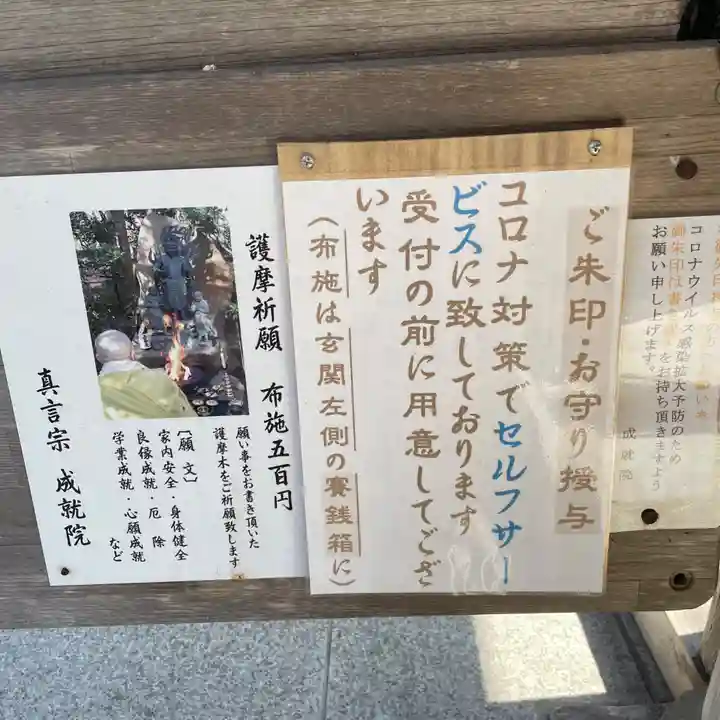 ご朱印・お守り授与
コロナ対策でセルフサー
ビスに致しております
受付の前に用意してござ
います
（布施は玄関左側の賽銭箱に）
護摩祈願　布施五百円
願い事をお書き頂いた
護摩木をご祈願致します
〔願　文〕
家内安全・身体健全
良縁成就・厄　除
学業成就・心願成就
など
真言宗　成就院
コロナウイルス感染拡大予防のため
御朱印は書
をお持ち頂きますよう
お願い申し上げます。
成就院